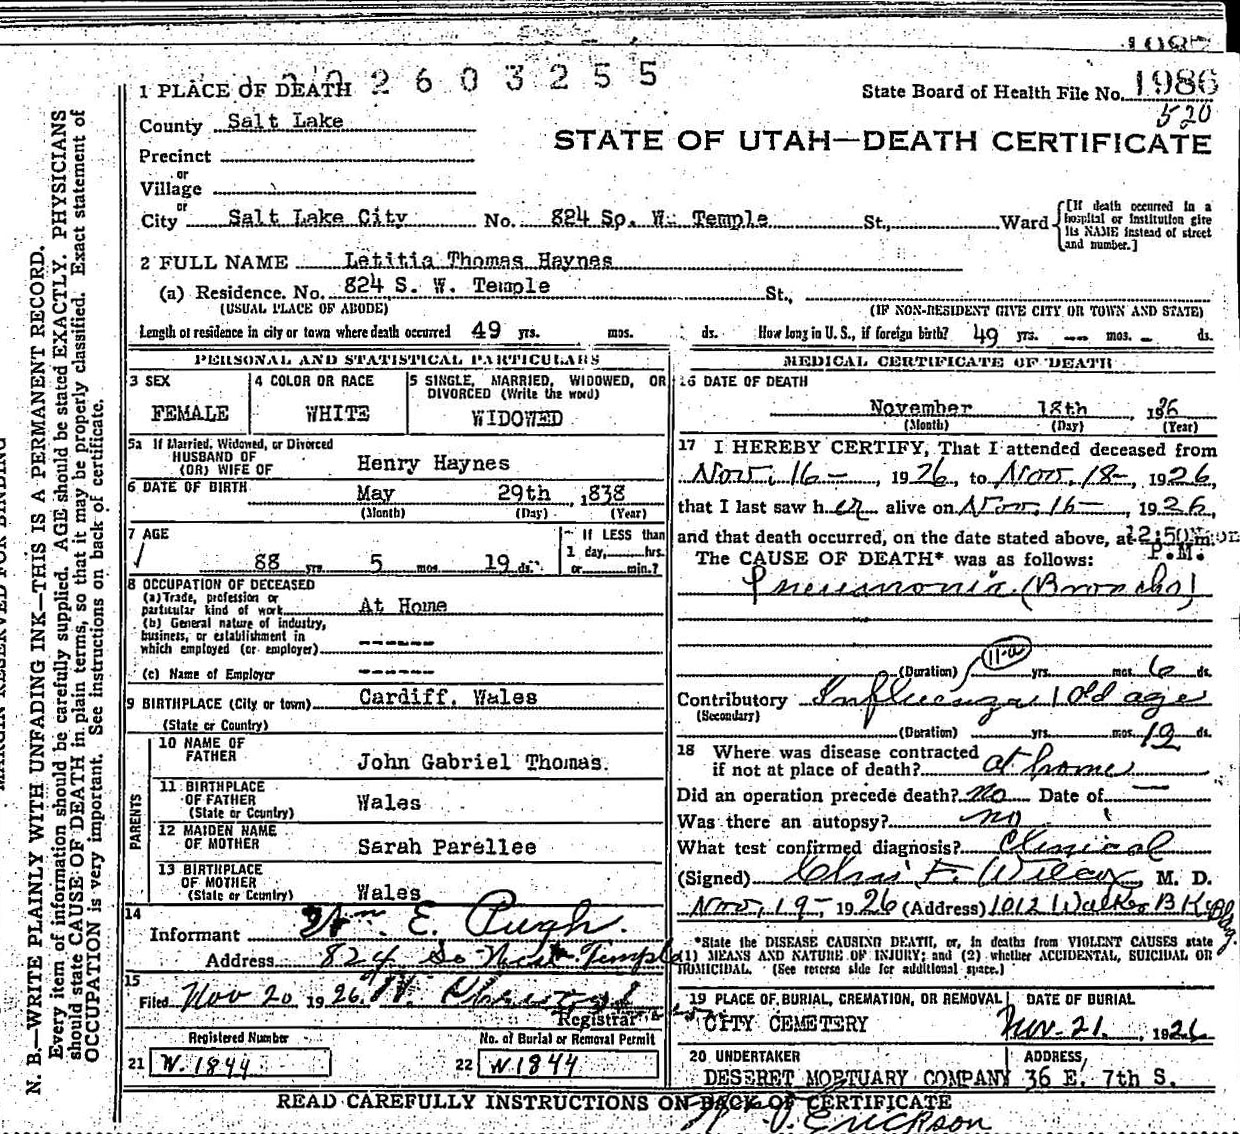 1986
2 6 0 3 2 5 5
1 PLACE OF DEATH
State Board of Health File No. 1986
520
County Salt Lake
STATE OF UTAH—DEATH CERTIFICATE
Precinct
or
Village
or
City Salt Lake City No. 824 So. W. Temple St., Ward
[If death occurred in a
hospital or institution give
its NAME instead of street
and number.]
2 FULL NAME Letitia Thomas Haynes
(a) Residence. No. 824 S. W. Temple St.,
(USUAL PLACE OF ABODE) (IF NON-RESIDENT GIVE CITY OR TOWN AND STATE)
Length of residence in city or town where death occurred 49 yrs. mos. ds. How long in U. S., if foreign birth? 49 yrs. -- mos. - ds.
PERSONAL AND STATISTICAL PARTICULARS
3 SEX
FEMALE
4 COLOR OR RACE
WHITE
5 SINGLE, MARRIED, WIDOWED, OR
DIVORCED (Write the word)
WIDOWED
5a If Married, Widowed, or Divorced
HUSBAND OF
(OR) WIFE OF Henry Haynes
6 DATE OF BIRTH
May 29th , 1838
(Month) (Day) (Year)
7 AGE
88 yrs. 5 mos. 19 ds.
If LESS than
1 day, hrs.
or min.?
8 OCCUPATION OF DECEASED
(a) Trade, profession or
particular kind of work At Home
(b) General nature of industry,
business, or establishment in
which employed (or employer) ------
(c) Name of Employer ------
9 BIRTHPLACE (City or town) Cardiff, Wales
(State or Country)
PARENTS
10 NAME OF
FATHER John Gabriel Thomas.
11 BIRTHPLACE
OF FATHER
(State or Country) Wales
12 MAIDEN NAME
OF MOTHER Sarah Parellee
13 BIRTHPLACE
OF MOTHER
(State or Country) Wales
14
Informant Wm. E. Pugh.
Address 824 So West Temple
15
Filed Nov 20 1926
Registrar
Registered Number
21 W. 1844
No. of Burial or Removal Permit
22 W 1844
MEDICAL CERTIFICATE OF DEATH
16 DATE OF DEATH
November 18th , 1926
(Month) (Day) (Year)
17 I HEREBY CERTIFY, That I attended deceased from
Nov. 16-, 1926, to Nov. 18-, 1926,
that I last saw her alive on Nov. 16-, 1926,
and that death occurred, on the date stated above, at 12:50 m.
P.M.
The CAUSE OF DEATH* was as follows:
Pneumonia (Broncho)
11-a
(Duration) yrs. mos. 6 ds.
Contributory Influenza / Old age
(Secondary)
(Duration) yrs. mos. 12 ds.
18 Where was disease contracted
if not at place of death? at home
Did an operation precede death? no Date of —
Was there an autopsy? no
What test confirmed diagnosis? Clinical
(Signed) Chas F. Wilcox, M. D.
Nov, 19-, 1926 (Address) 1012 Walker BK Bldg.
*State the DISEASE CAUSING DEATH, or, in deaths from VIOLENT CAUSES state
(1) MEANS AND NATURE OF INJURY; and (2) whether ACCIDENTAL, SUICIDAL OR
HOMICIDAL. (See reverse side for additional space.)
19 PLACE OF BURIAL, CREMATION, OR REMOVAL
CITY CEMETERY
DATE OF BURIAL
Nov. 21, 1926
20 UNDERTAKER
DESERET MORTUARY COMPANY
ADDRESS,
36 E. 7th S.
READ CAREFULLY INSTRUCTIONS ON BACK OF CERTIFICATE
Erickson
MARGIN RESERVED FOR BINDING
N. B.—WRITE PLAINLY WITH UNFADING INK—THIS IS A PERMANENT RECORD.
Every item of information should be carefully supplied. AGE should be stated EXACTLY. PHYSICIANS
should state CAUSE OF DEATH in plain terms, so that it may be properly classified. Exact statement of
OCCUPATION is very important. See instructions on back of certificate.